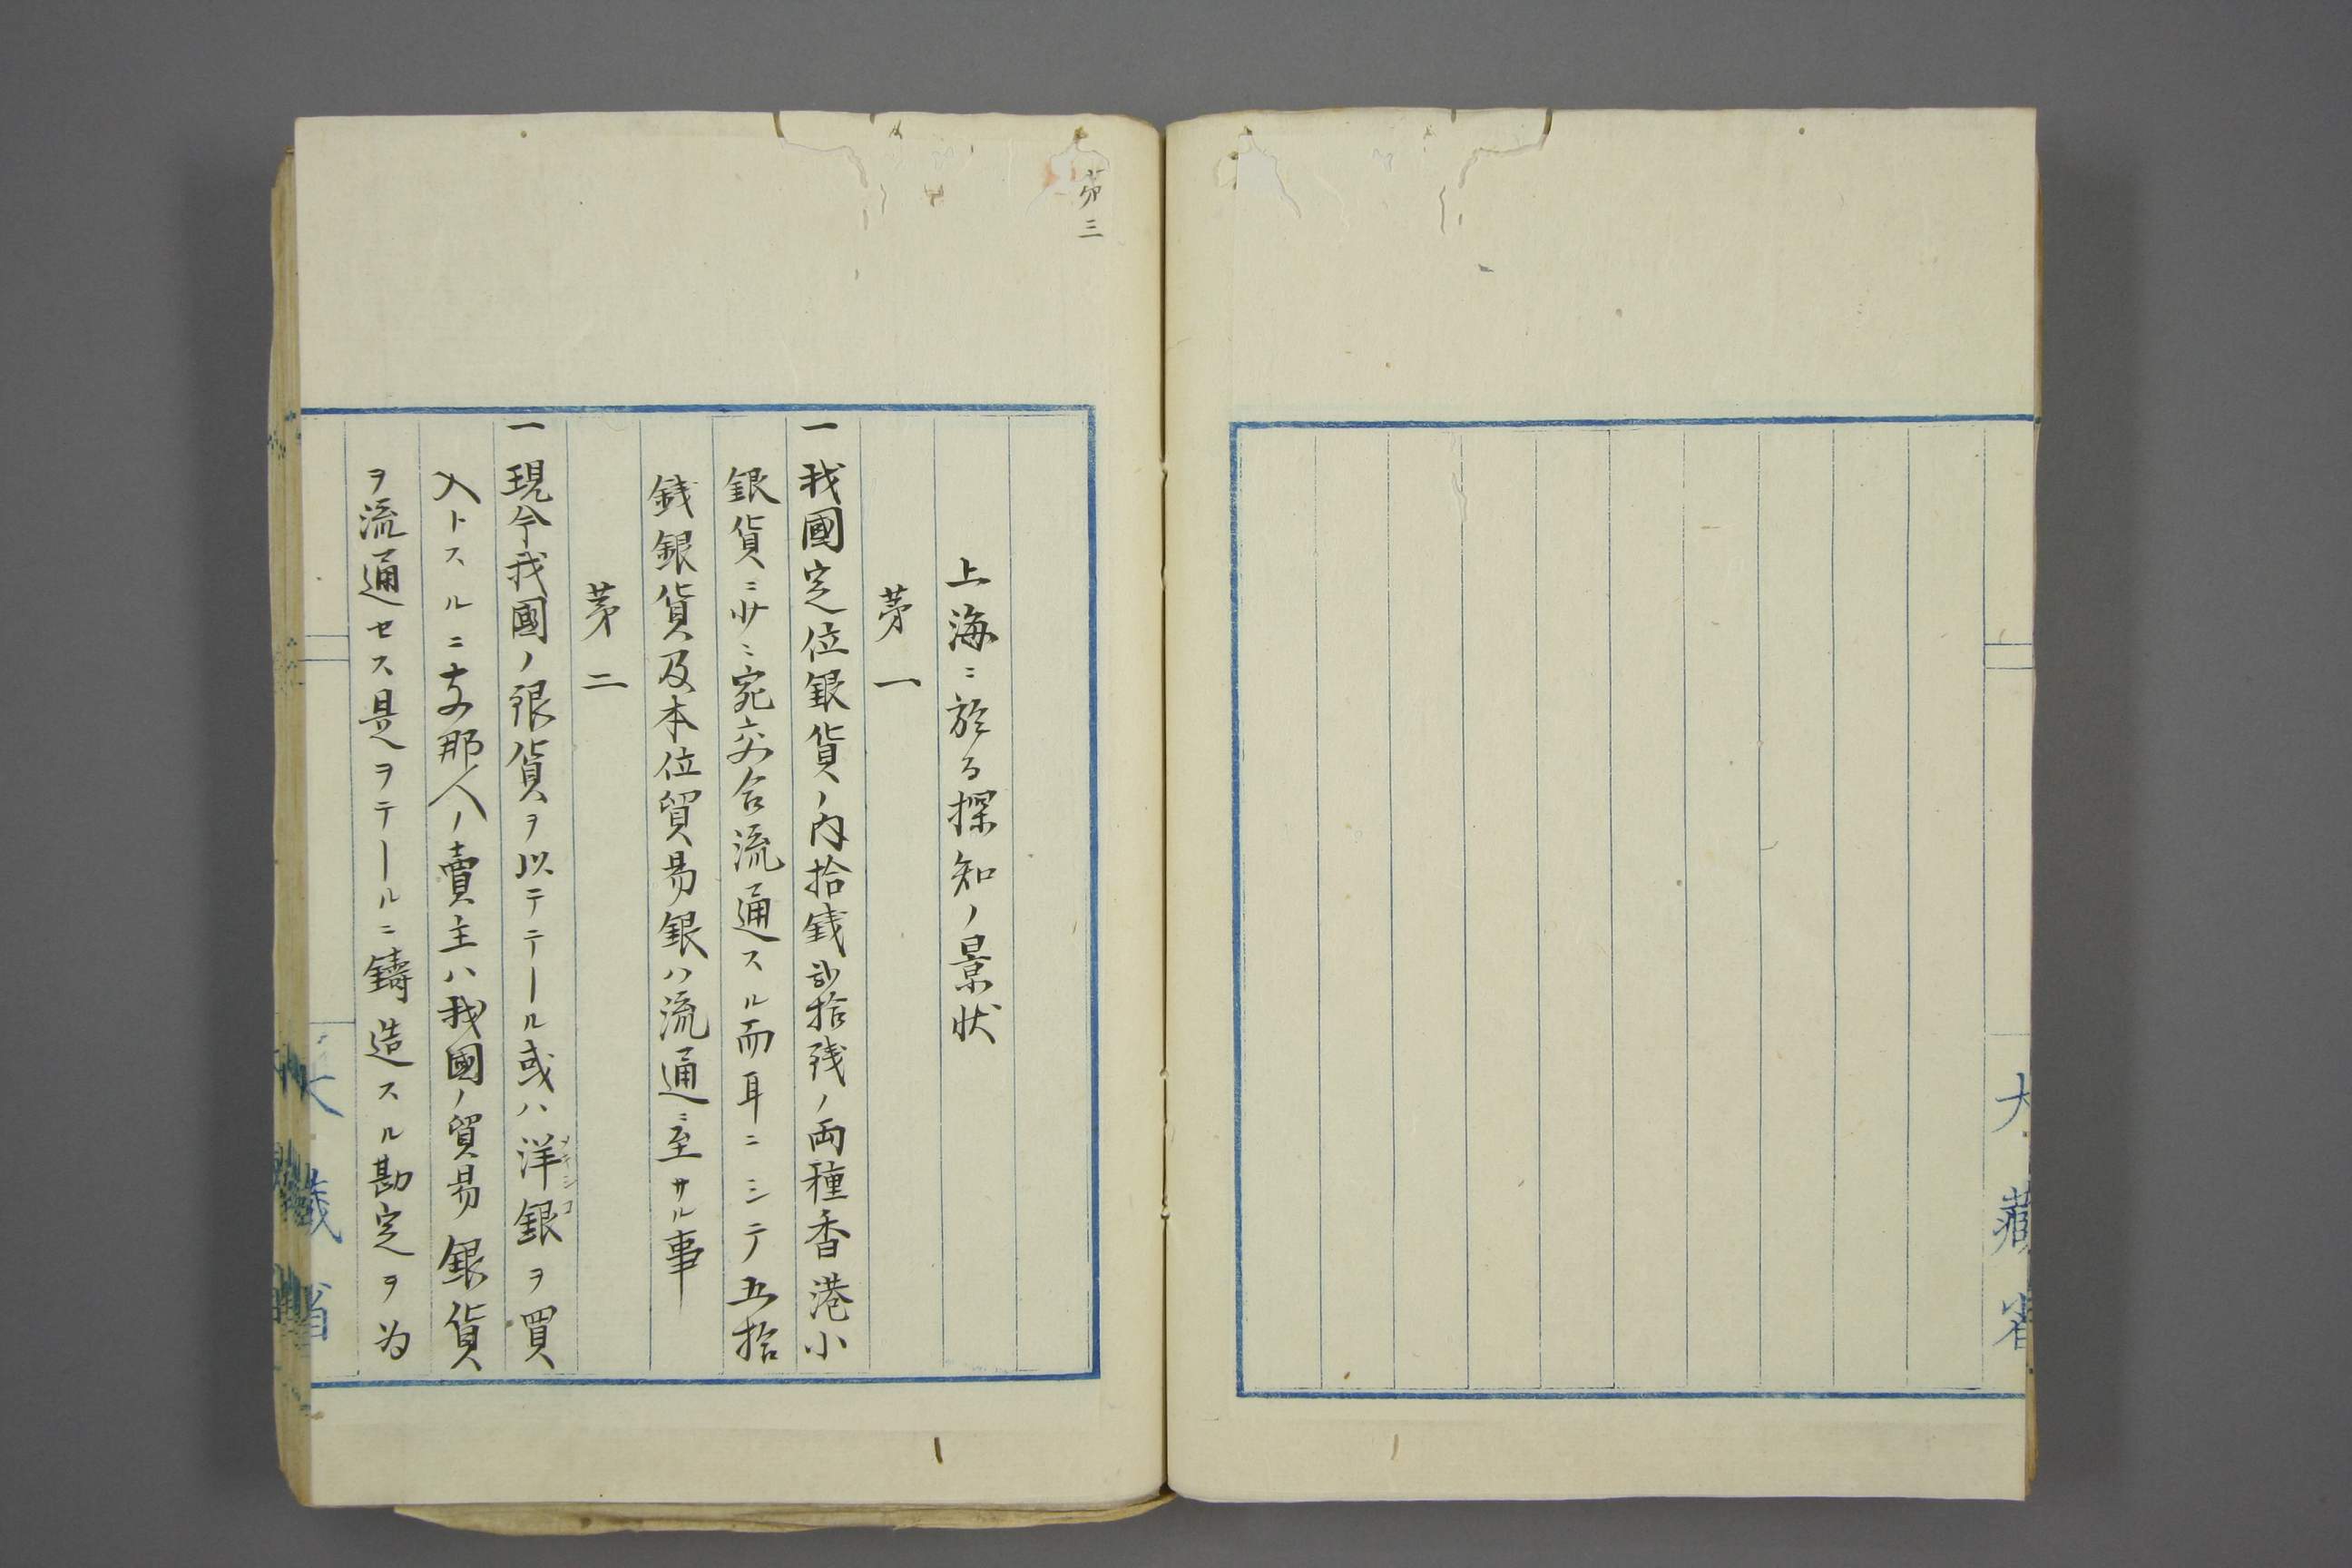 大藏省
第三
上海ニ於る探知ノ景状
第一
一我國定位銀貨ノ内拾銭弐拾残ノ両種香港小
銀貨ニ少ニ宛交合流通スル而耳ニシテ五拾
銭銀貨及本位貿易銀ハ流通ニ至サル事
第二
一現今我國ノ銀貨ヲ以テテール或ハ洋銀ヲ買
入トスルニ支那人ノ賣主ハ我國ノ貿易銀貨
ヲ流通セス是ヲテールニ鑄造スル勘定ヲ為
大藏省